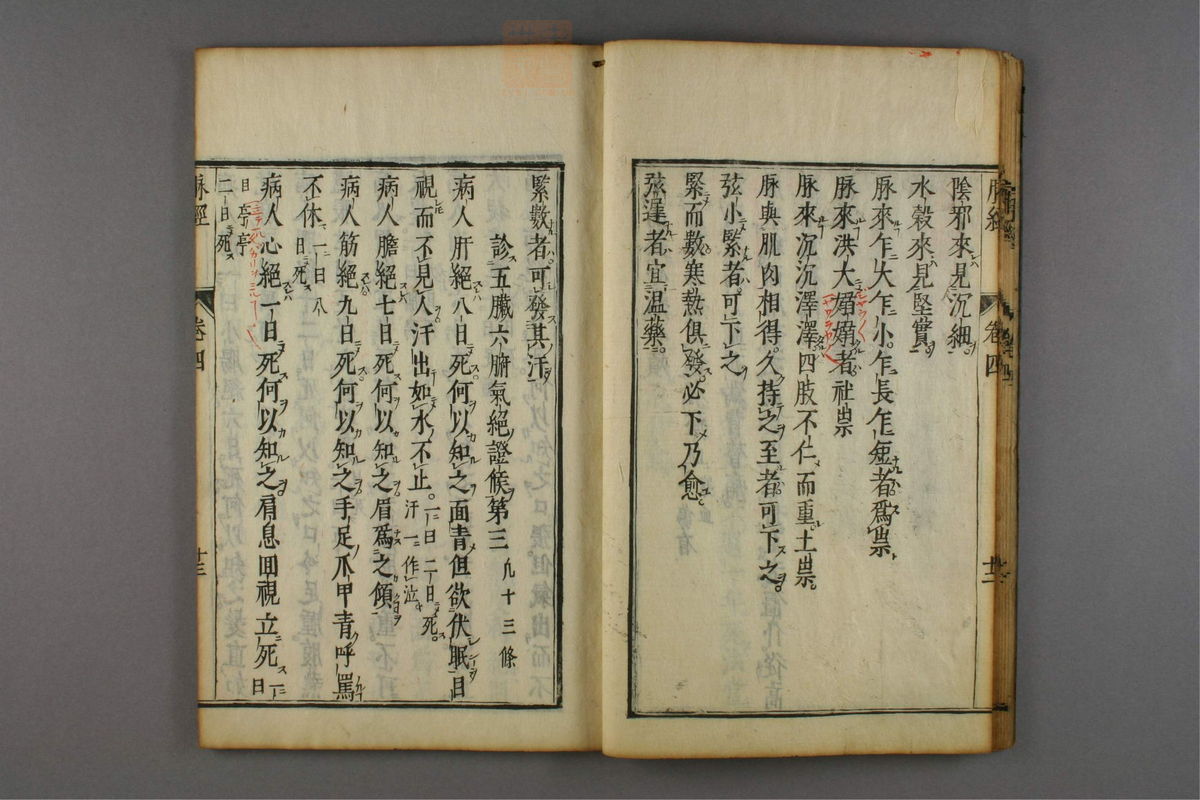 陰邪來見沉細
水穀來見堅實
脉來乍大乍小乍長乍短者爲祟
脉來洪大嫋嫋者社祟
脉來沉沉澤澤四肢不仁而重土祟
脉與肌肉相得久持之至者可下之
弦小緊者可下之
緊而數寒熱俱發必下乃愈
弦遲者宜温藥
緊數者可發其汗
診五臟六腑氣絕證候第三 凡十三條
病人肝絕八日死何以知之面青但欲伏眠目
視而不見人汗出如水不止 一曰二日死
汗一作泣
病人膽絕七日死何以知之眉爲之傾
病人筋絕九日死何以知之手足爪甲青呼罵
不休 一曰八日死
病人心絕一日死何以知之肩息回視立死 一曰
目亭亭
二日死
脉經 卷四 十三